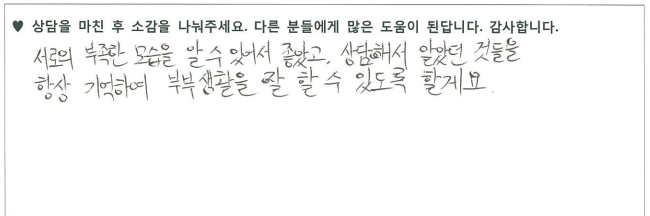 ♥ 상담을 마친 후 소감을 나눠주세요. 다른 분들에게 많은 도움이 된답니다. 감사합니다.
서로의 부족한 모습을 알 수 있어서 좋았고, 상담해서 알았던 것들을
항상 기억하여 부부생활을 잘 할 수 있도록 할게요.